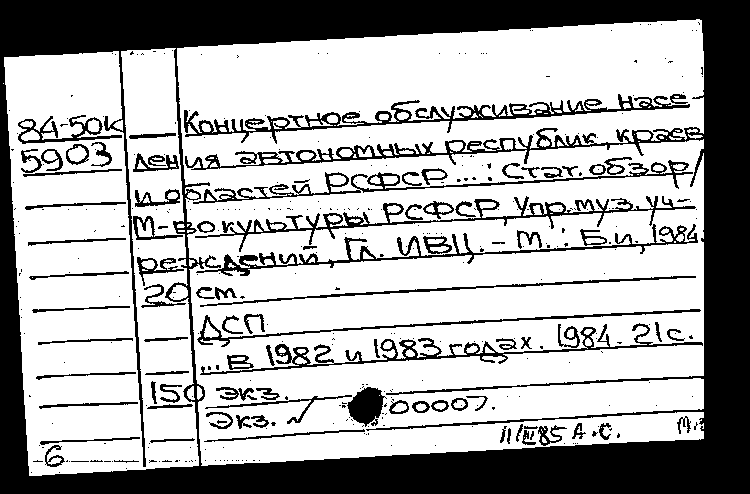 84-50к Концертное обслуживание насе-
5903 ления автономных республик, краев
и областей РСФСР ... : Стат. обзор /
М-во культуры РСФСР, Упр. муз. уч-
реждений, Гл. ИВЦ. - М. : Б.и., 1984.
20 см.
ДСП
... в 1982 и 1983 годах. 1984. 21 с.
150 экз.
Экз. √ 00007.
11/III 85 А.С.
6